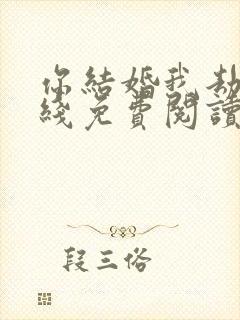 你結婚我劫
綫免費閱讀
段三俗